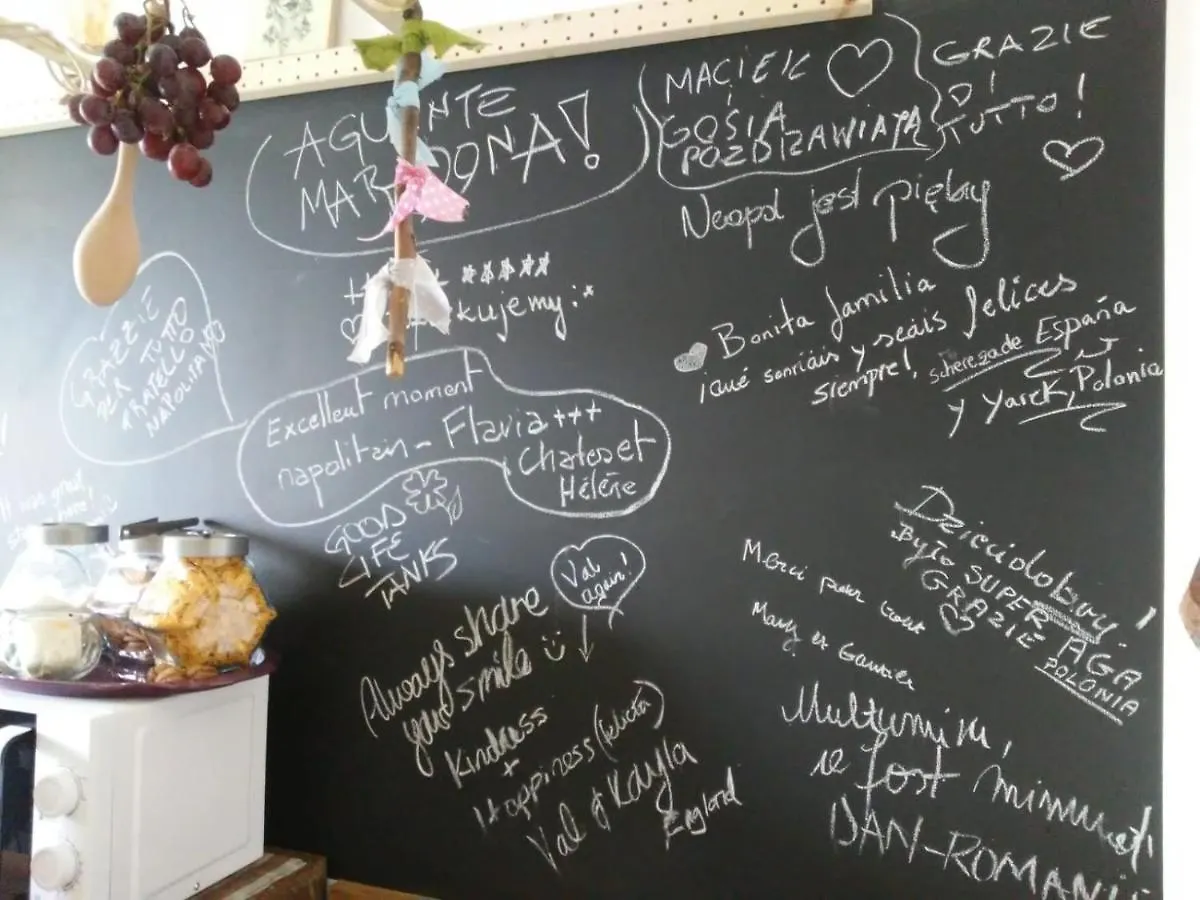 AGUANTE
MARADONA!
MACIEK
GOSIA
POZDRAWIAJĄ
GRAZIE
DI
TUTTO!
Neapol jest piękny
kujemy:*
GRAZZIE
PER TUTTO
FRATELLO
NAPOLITANO
Bonita familia
¡qué sonriáis y seáis felices
siempre!, scherezade España
y Yarek, Polonia
Excellent moment
napolitain - Flavia +++
et
Hélène
GOOD
LIFE
TANKS
Val
again!
Always share
your smile
Kindness
+
Happiness (felicità)
Val & Kayla
England
Dzień dobry!
BYŁO SUPER AGA
GRAZIE POLONIA
Merci pour tout
Mary et Gauvier
Multumim,
a fost minunat!
DAN-ROMANIA